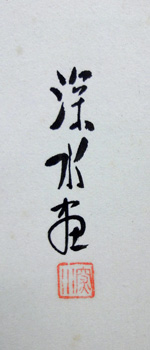 深水画